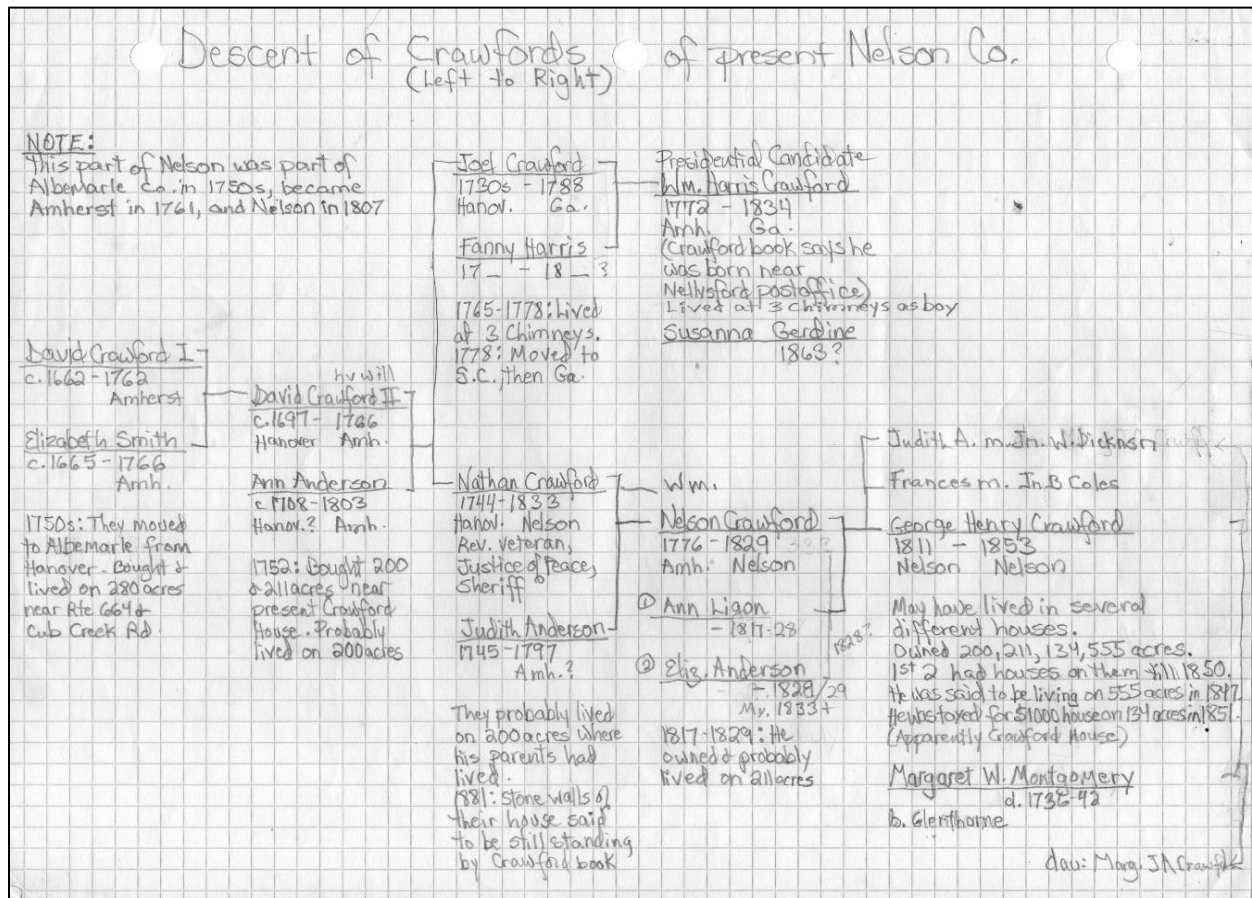 Descent of Crawfords of present Nelson Co.
(Left to Right)
NOTE:
This part of Nelson was part of
Albemarle Co. in 1750s, became
Amherst in 1761, and Nelson in 1807
David Crawford I
c. 1662 - 1762
Amherst
Elizabeth Smith
c. 1665 - 1766
Amh.
1750s: They moved
to Albemarle from
Hanover. Bought &
lived on 280 acres
near Rte 664 &
Cub Creek Rd.
hv will
David Crawford II
c. 1697 - 1766
Hanover Amh.
Ann Anderson
c 1708 - 1803
Hanov.? Amh.
1752: Bought 200
& 211 acres near
present Crawford
House. Probably
lived on 200 acres
Joel Crawford
1730s - 1788
Hanov. Ga.
Fanny Harris
17_ - 18_ ?
1765-1778: Lived
at 3 Chimneys.
1778: Moved to
S.C., then Ga.
Nathan Crawford
1744-1833
Hanov. Nelson
Rev. Veteran,
Justice of Peace,
Sheriff
Judith Anderson
1745-1797
Amh.?
They probably lived
on 200 acres where
his parents had
lived.
1881: Stone walls of
their house said
to be still standing
by Crawford book
Presidential Candidate
Wm. Harris Crawford
1772 - 1834
Amh. Ga.
(Crawford book says he
was born near
Nellysford postoffice)
Lived at 3 Chimneys as boy
Susanna Gerdine
1863?
Wm.
Nelson Crawford
1776 - 1829
Amh. Nelson
① Ann Ligon
- 1817-28
1828?
② Eliz. Anderson
- 1828/29
My. 1833+
1817-1829: He
owned & probably
lived on 211 acres
Judith A. m. Jn. W. Dicknsn
Frances m. Jn. B Coles
George Henry Crawford
1811 - 1853
Nelson Nelson
May have lived in several
different houses.
Owned 200, 211, 134, 555 acres.
1st 2 had houses on them till 1850.
He was said to be living on 555 acres in 1847.
He was taxed for $1000 house on 134 acres in 1851.
(Apparently Crawford House)
Margaret W. Montgomery
b. Glenthorne
dau: Marg. JA Crawfd